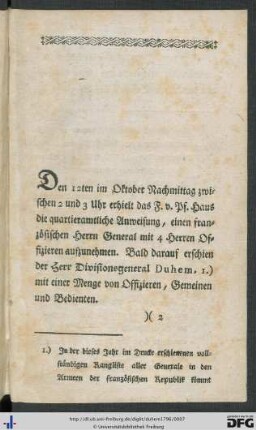 Den 12ten im Oktober Nachmittag zwi-
schen 2 und 3 Uhr erhielt das F. v. Pf. Haus
die quartieramtliche Anweisung, einen fran-
zösischen Herrn General mit 4 Herren Of-
fizieren aufzunehmen. Bald darauf erschien
der Herr Divisionsgeneral Duhem. 1.)
mit einer Menge von Offizieren, Gemeinen
und Bedienten.
)( 2
1.) In der dieses Jahr im Drucke erschienenen voll-
ständigen Rangliste aller Generale in den
Armeen der französischen Republik kommt
http://dl.ub.uni-freiburg.de/diglit/duhem1796/0007
© Universitätsbibliothek Freiburg
gefördert durch die
DFG